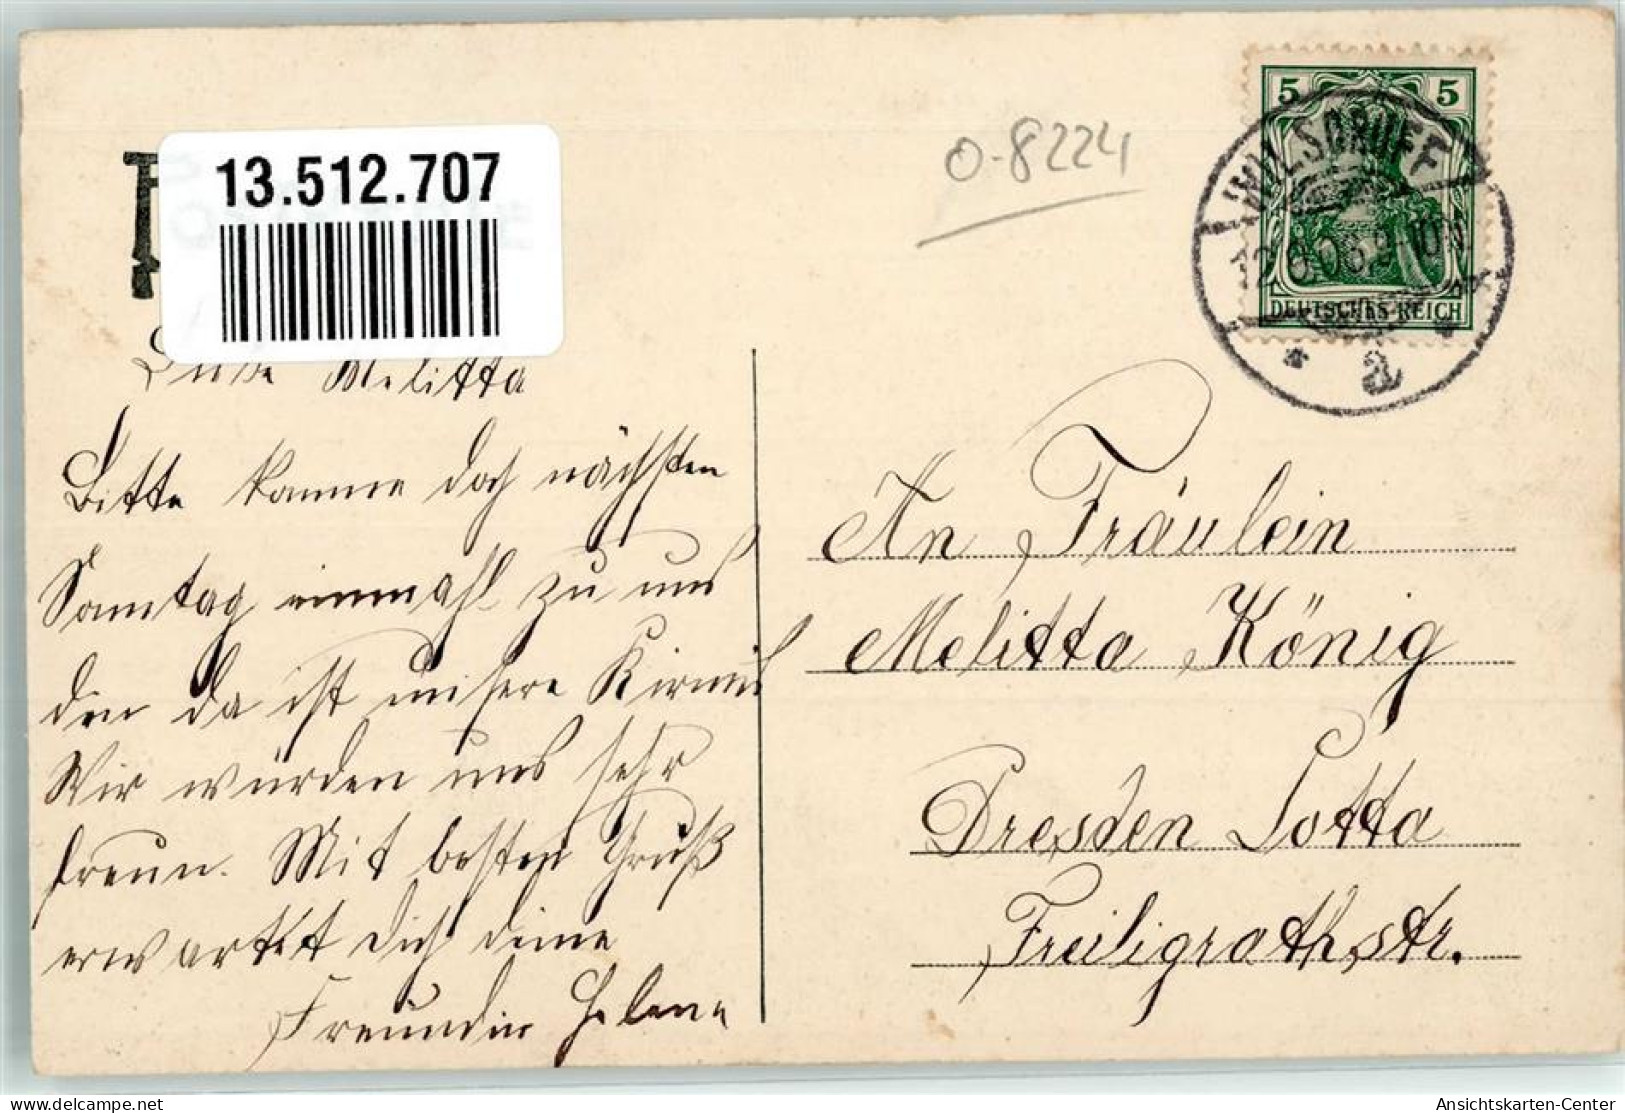 13.512.707
O-8224
5 5
WILSDRUFF
DEUTSCHES REICH
* a
Liebe Melitta
Bitte komme doch nächsten
Sonntag einmahl zu uns
den da ist unsere Kirmis
Wir würden uns sehr
freun. Mit besten Gruß
erwartet dich deine
Freundin Helene
An Fräulein
Melitta König
Dresden Lotta
Freiligrathstr.
delcampe.net
Ansichtskarten-Center